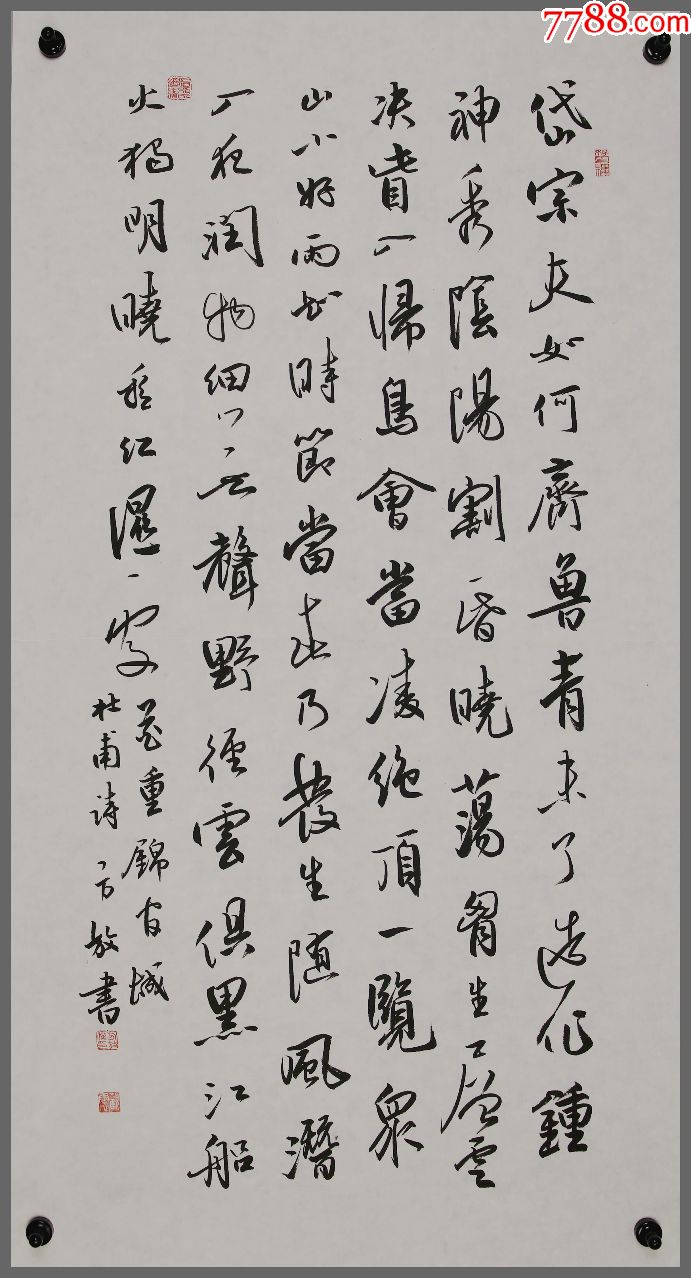 7788.com
岱宗夫如何齊魯青未了造化鍾
神秀陰陽割昏曉蕩胷生層雲
決眥入歸鳥會當凌絕頂一覽眾
山小好雨知時節當春乃發生随風潛
入夜潤物細無聲野徑雲俱黑江船
火獨明曉看紅濕處
花重錦官城
杜甫詩 書